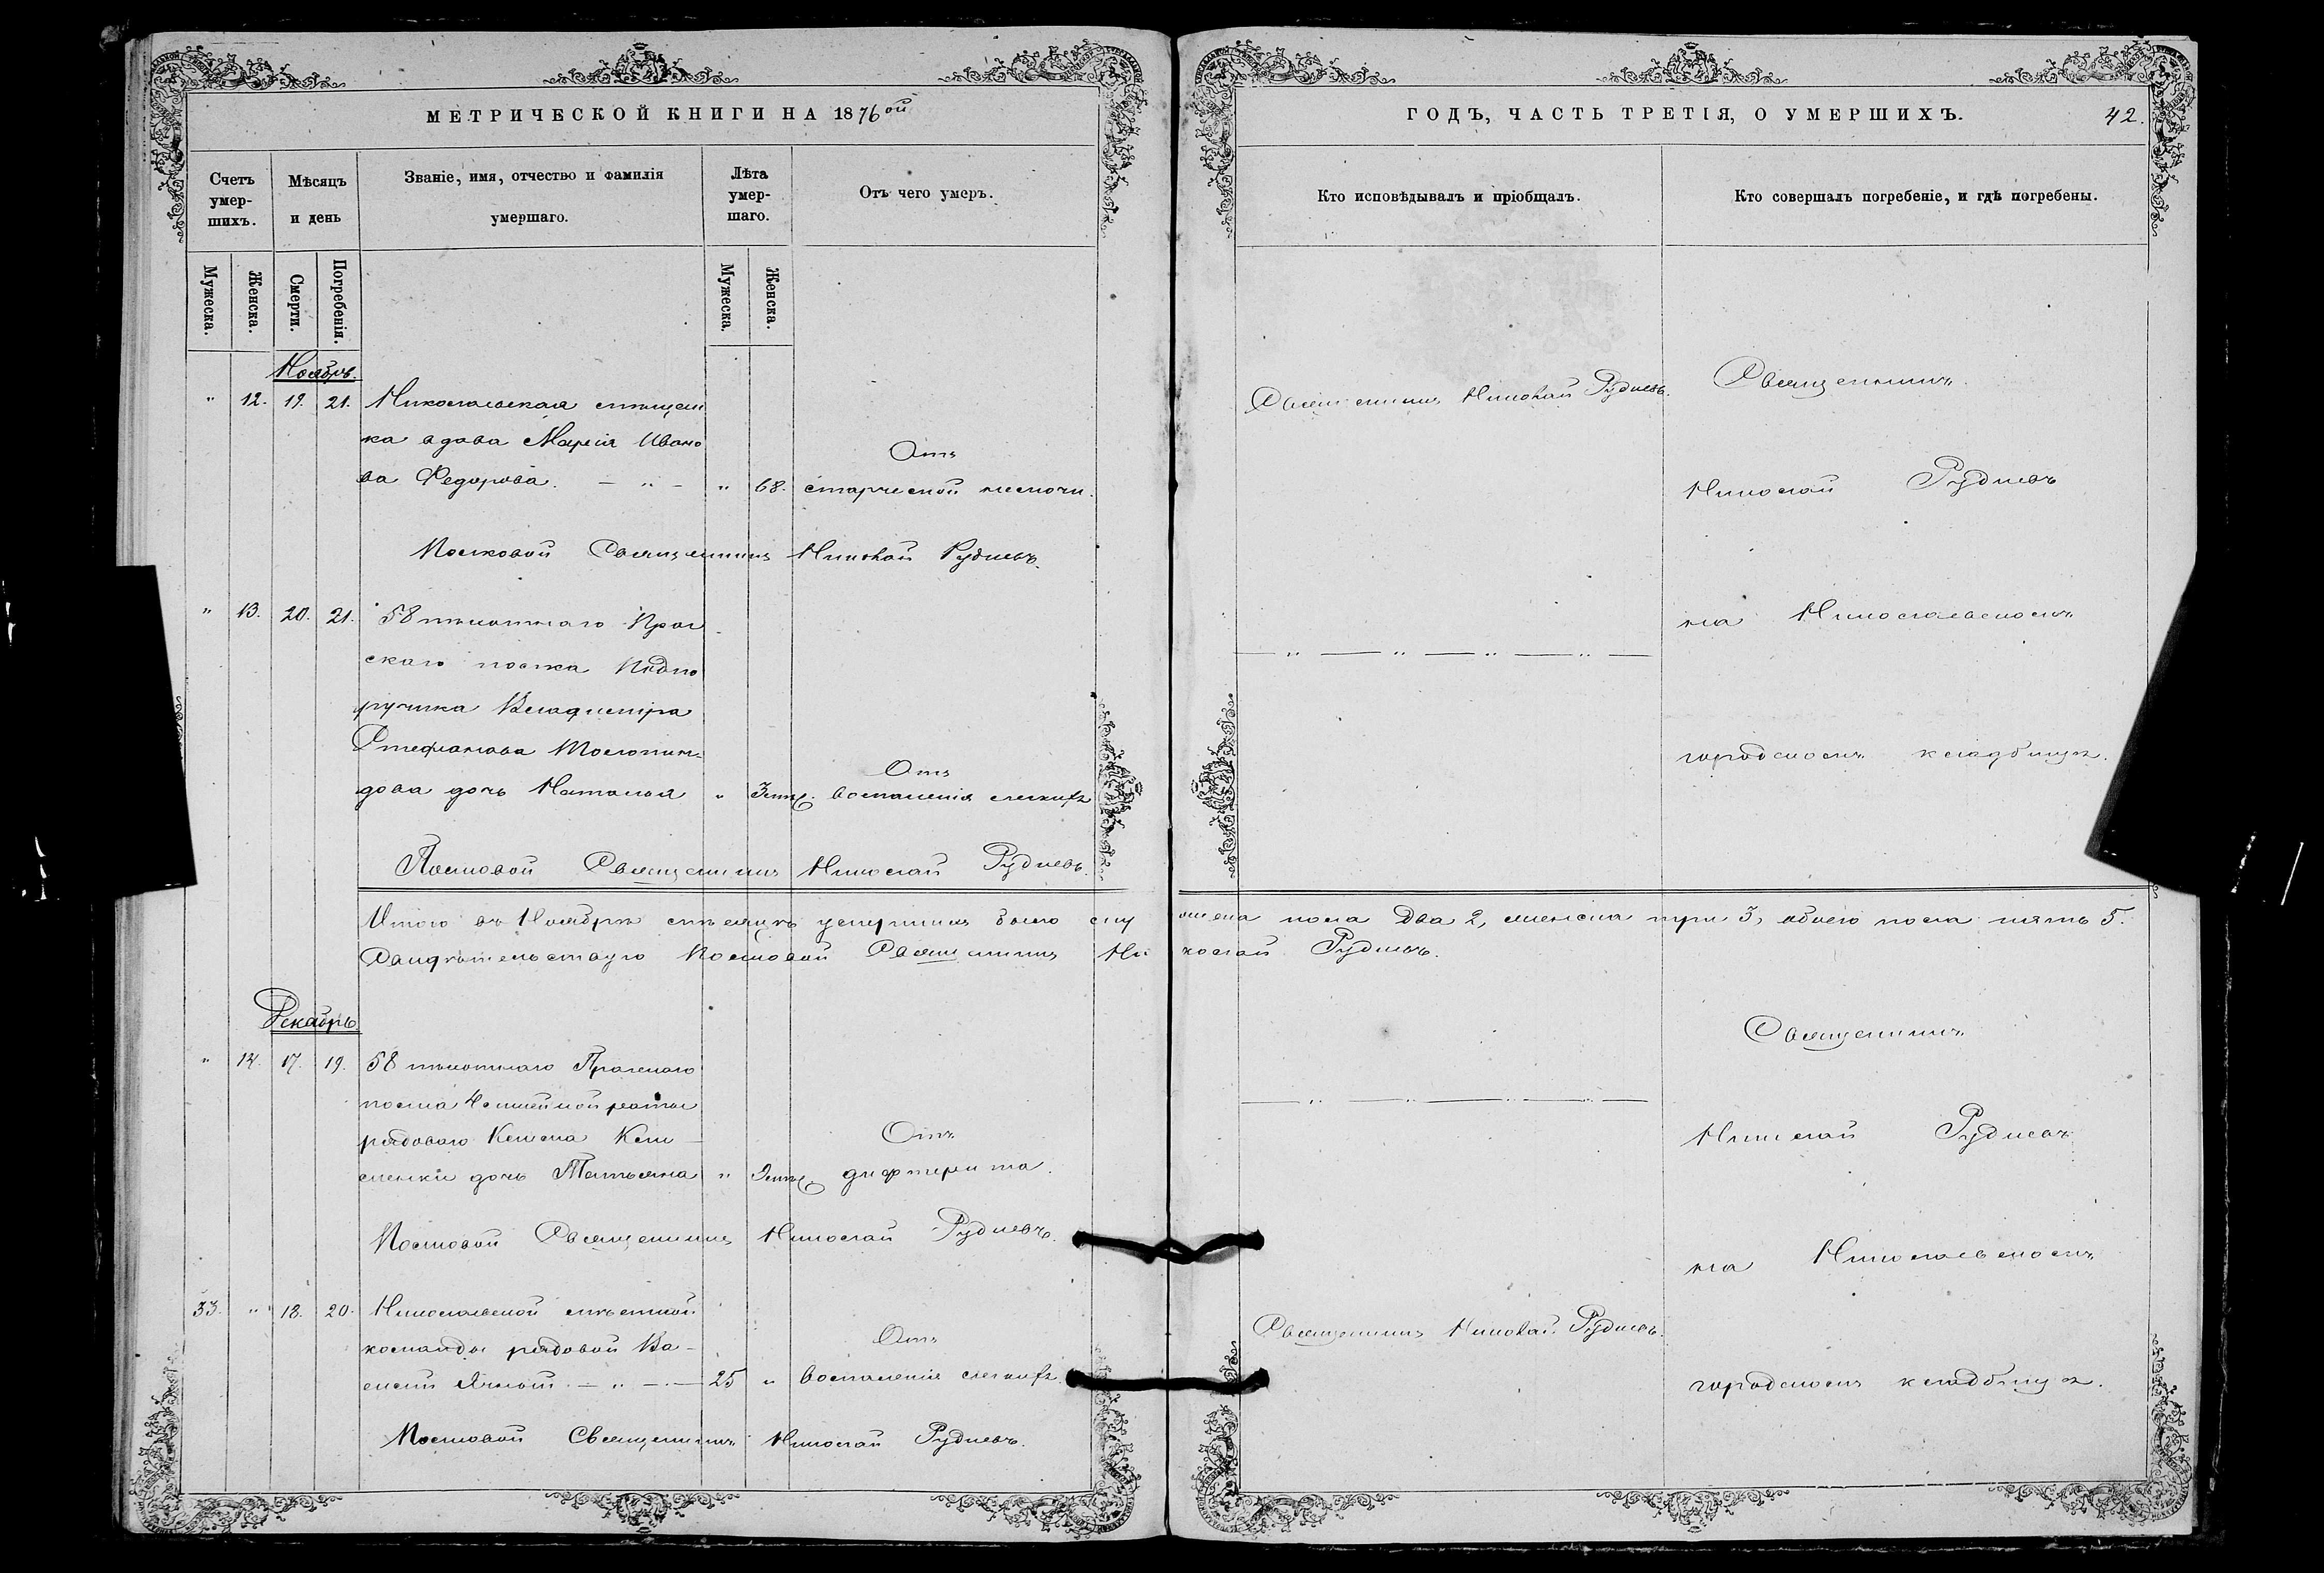 МЕТРИЧЕСКОЙ КНИГИ НА 1876ой
Счетъ умер-шихъ.
Мѣсяцъ и день
Званіе, имя, отчество и фамилія умершаго.
Лѣта умер-шаго.
Отъ чего умеръ.
Мужеска.
Женска.
Смерти.
Погребенія.
Мужеска.
Женска.
Ноябрь.
" 12. 19. 21. Николаевская мѣщан
ка вдова Марія Ивано
ва Федорова. — " — " 68. Отъ старческой немочи.
Полковой Священникъ Николай Рудневъ.
" 13. 20. 21. 58 пѣхотнаго Праг
скаго полка Подпо
ручика Владиміра
Стефанова
дова дочь Наталья " 3 Отъ воспаленія легкихъ
Полковой Священникъ Николай Рудневъ.
Итого въ Ноябрѣ мѣсяцѣ умершихъ было му
Свидѣтельствую Полковой Священникъ Ни
Декабрь.
" 14. 17. 19. 58 пѣхотнаго Пражскаго
полка Линейной роты
рядоваго
дочь Татьяна " Отъ дифтерита.
Полковой Священникъ Николай Рудневъ.
33. " 18. 20. Николаевской мѣстной
команды рядовой Ва-
силій — " — 25 " Отъ воспаленія легкихъ.
Полковой Священникъ Николай Рудневъ.
ГОДЪ, ЧАСТЬ ТРЕТІЯ, О УМЕРШИХЪ.
42.
Кто исповѣдывалъ и пріобщалъ.
Кто совершалъ погребеніе, и гдѣ погребены.
Священникъ Николай Рудневъ.
Священникъ
Николай Рудневъ
на Николаевскомъ
— " — " — " — " —
городскомъ кладбищѣ.
жеска пола два 2, женска три 3, обоего пола пять 5.
колай Рудневъ.
Священникъ
— " — " — " —
Николай Рудневъ
на Николаевскомъ
Священникъ Николай Рудневъ.
городскомъ кладбищѣ.